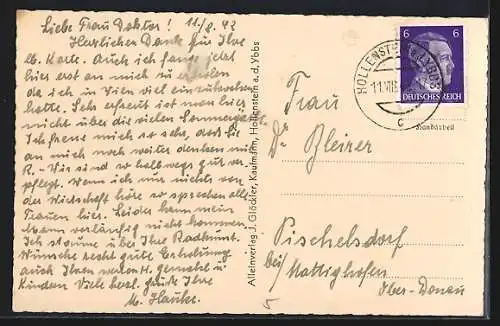 Liebe Frau Doktor! 11/8. 42
Herzlichen Dank für Ihre
lb. Karte. Auch ich fange jetzt
hier erst an mich zu erholen
da ich in Wien viel einzukochen
hatte. Sehr erfreut ist man hier
nicht über die vielen Sommergäste.
Ich freue mich so sehr, daß Sie
an mich noch weiter denken
R. Wir sind so halbwegs gut ver
pflegt. Wenn ich nur nichts von
der Wirtschaft höre so sprechen alle
Frauen hier. Leider kann mein
Mann vorläufig nicht kommen.
Ich staune über Ihre Radkunst.
Wünsche recht gute Erholung
auch Ihrem werten H. Gemahl u
Kindern Viele herzl. Grüße Ihre
M. Hauke.
Alleinverlag J. Glöckler, Kaufmann, Hollenstein a. d. Ybbs
HOLLENSTEIN
11.VIII.
c
6 6
DEUTSCHES REICH
Frau
Dr Bleirer
Pischelsdorf
bei Mattighofen
Ober-Donau